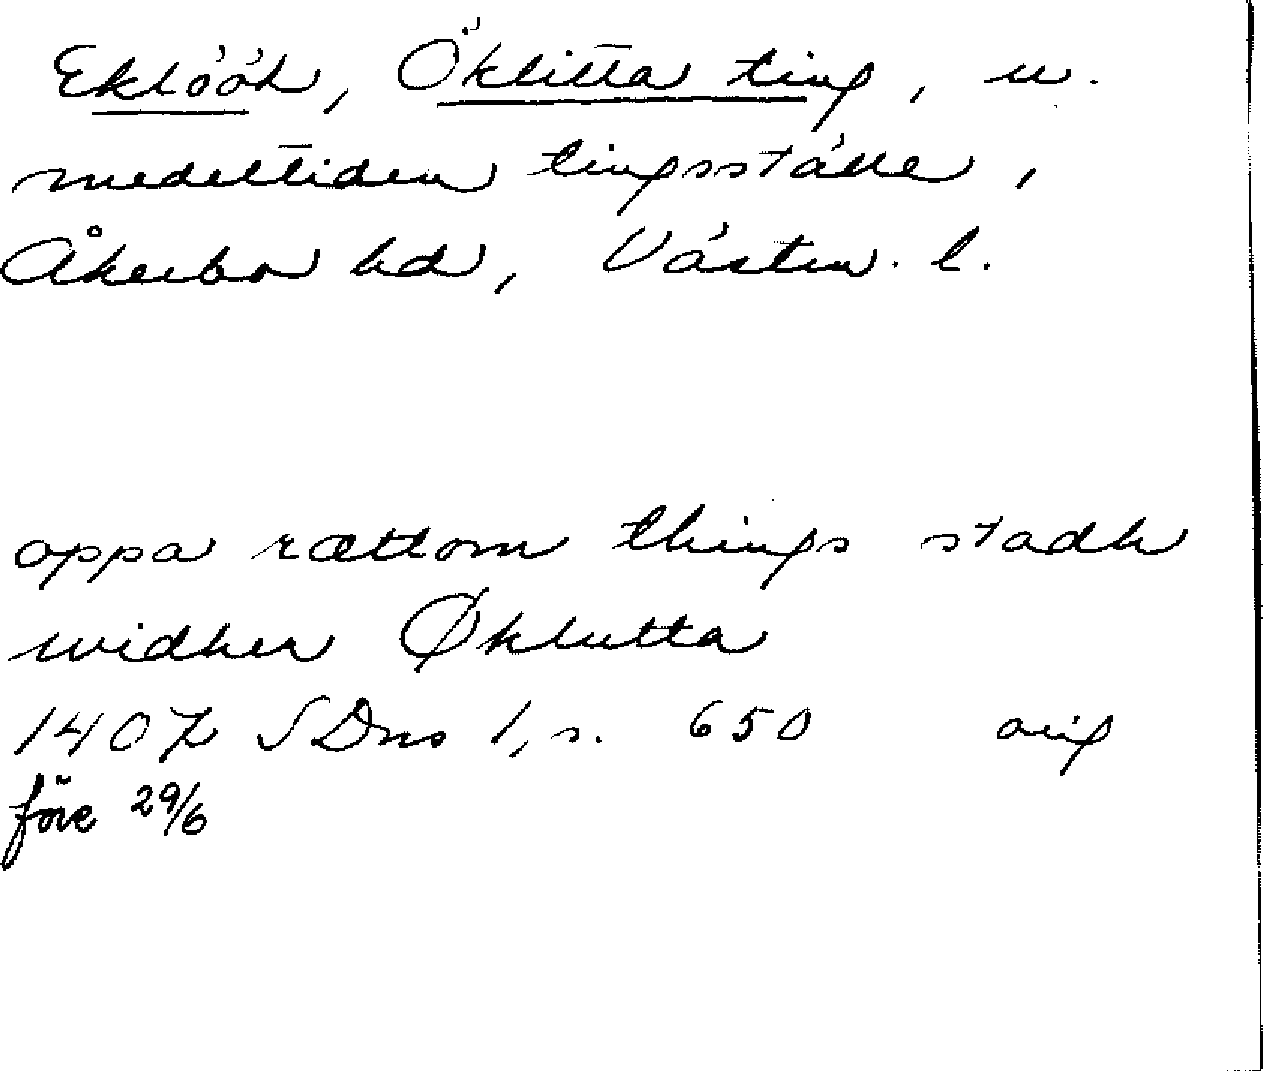 Eklöök, Öklitta ting, u.
medeltiden tingsställe,
Åkerbo hd, Västm. l.
oppa rættom things stadh
widher Øklutta
1407 SDns 1, s. 650 orig
före 29/6